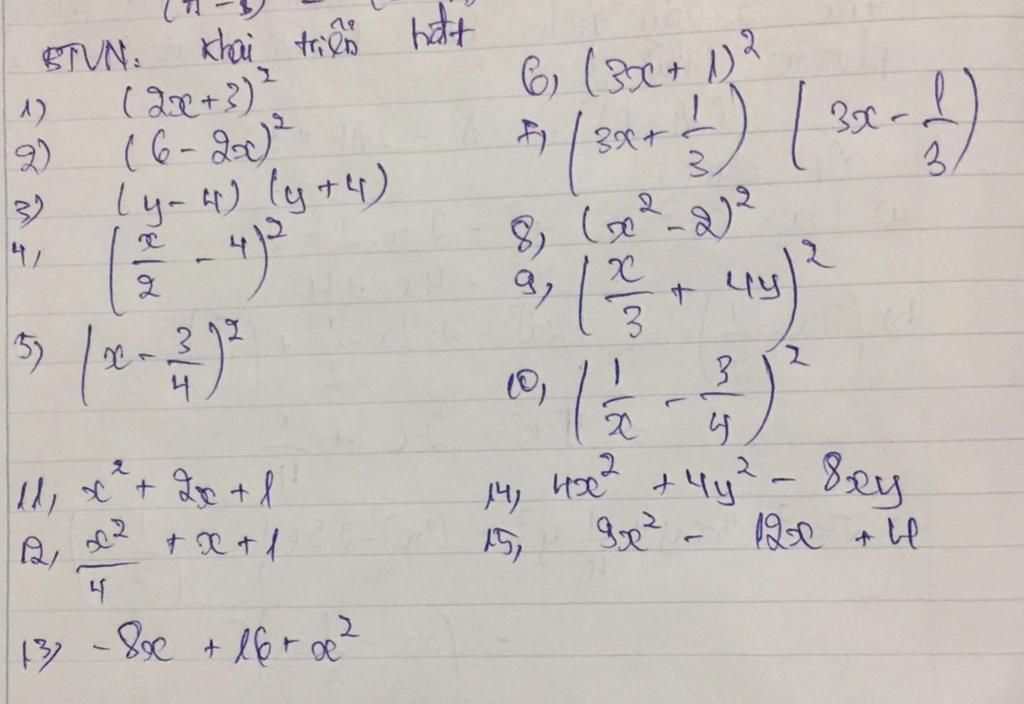 (x - 3)
BTVN: Khai triển hđt
1) (2x+3)²
2) (6 - 2x)²
3) (y - 4) (y + 4)
4, (x/2 - 4)²
5) (x - 3/4)²
6, (3x + 1)²
7, (3x + 1/3) (3x - 1/3)
8, (x² - 2)²
9, (x/3 + 4y)²
10, (1/x - 3/4)²
11, x² + 2x + 1
12, x²/4 + x + 1
13) - 8x + 16 + x²
14, 4x² + 4y² - 8xy
15, 9x² - 12x + 4